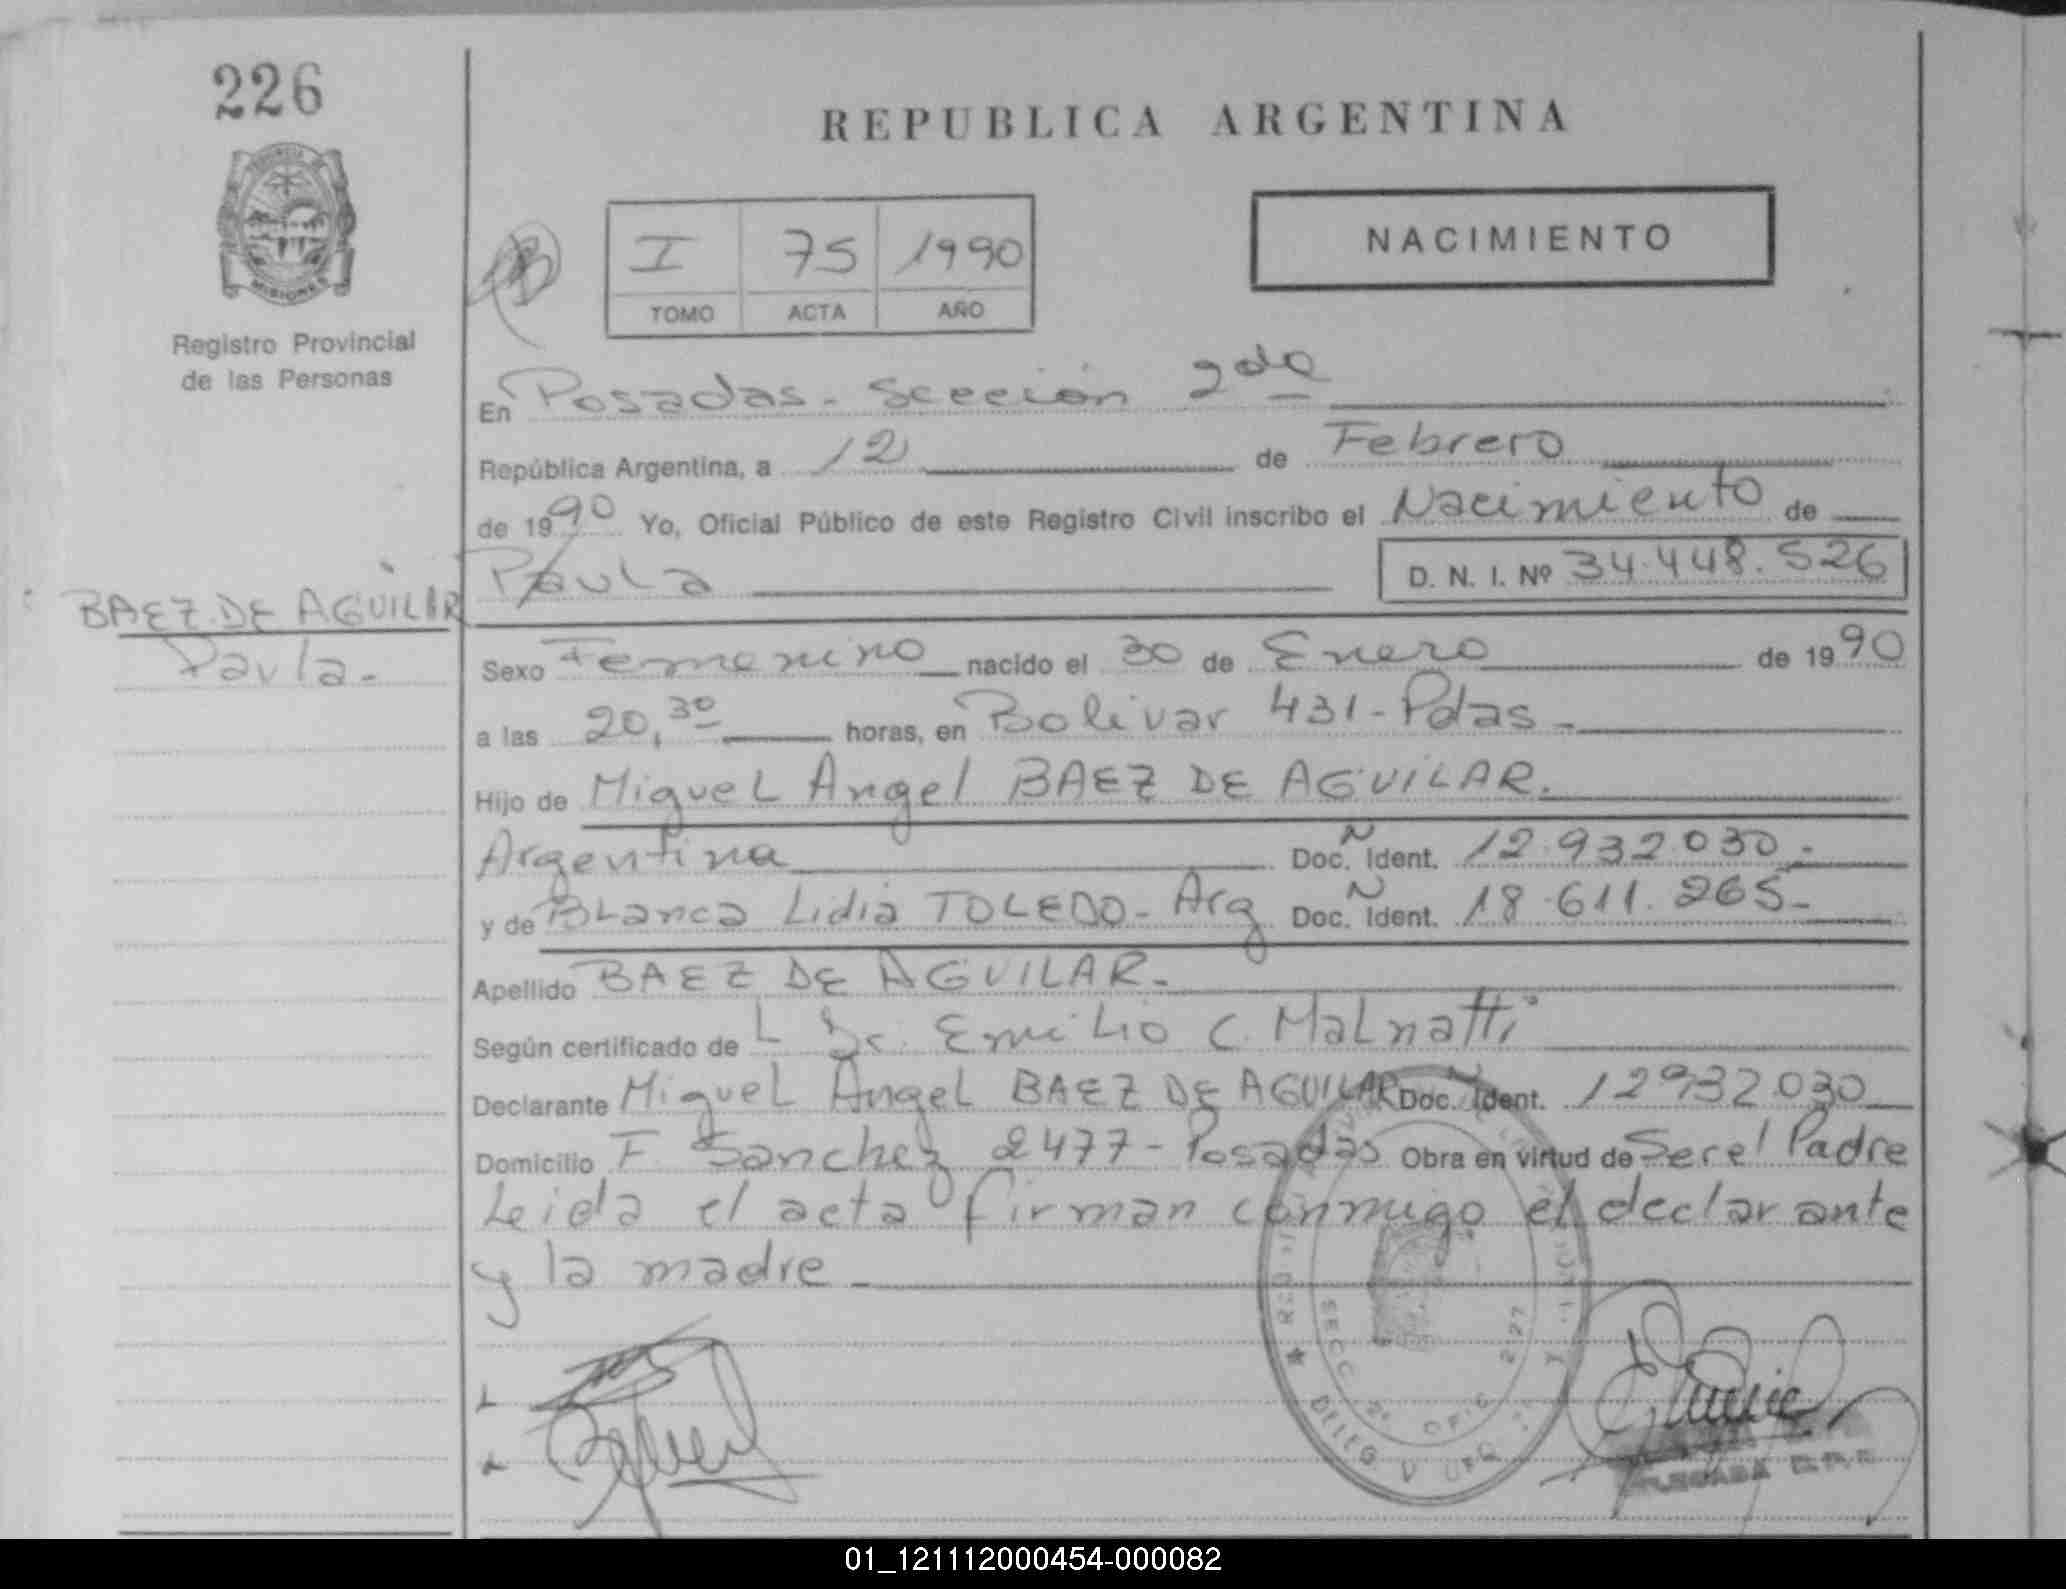 226
REPUBLICA ARGENTINA
MISIONES
Registro Provincial
de las Personas
I 75 1990
TOMO ACTA AÑO
NACIMIENTO
En Posadas - Sección 2da
República Argentina, a 12 de Febrero
de 1990 Yo, Oficial Público de este Registro Civil inscribo el Nacimiento de
Paula D. N. I. Nº 34.448.526
BAEZ DE AGUILAR
Paula -
Sexo Femenino nacido el 30 de Enero de 1990
a las 20,30 horas, en Bolivar 431 - Pdas -
Hijo de Miguel Angel BAEZ DE AGUILAR.
Argentina Doc. Ident. 12.932.030 -
y de Blanca Lidia TOLEDO - Arg Doc. Ident. 18.611.265 -
Apellido BAEZ DE AGUILAR -
Según certificado de L Dr. Emilio C. Malnatti
Declarante Miguel Angel BAEZ DE AGUILAR Doc. Ident. 12932.030
Domicilio F. Sanchez 2477 - Posadas Obra en virtud de Ser el Padre
Leida el acta firman conmigo el declarante
y la madre
SECC. 2ª OFIC. 227
01_121112000454-000082